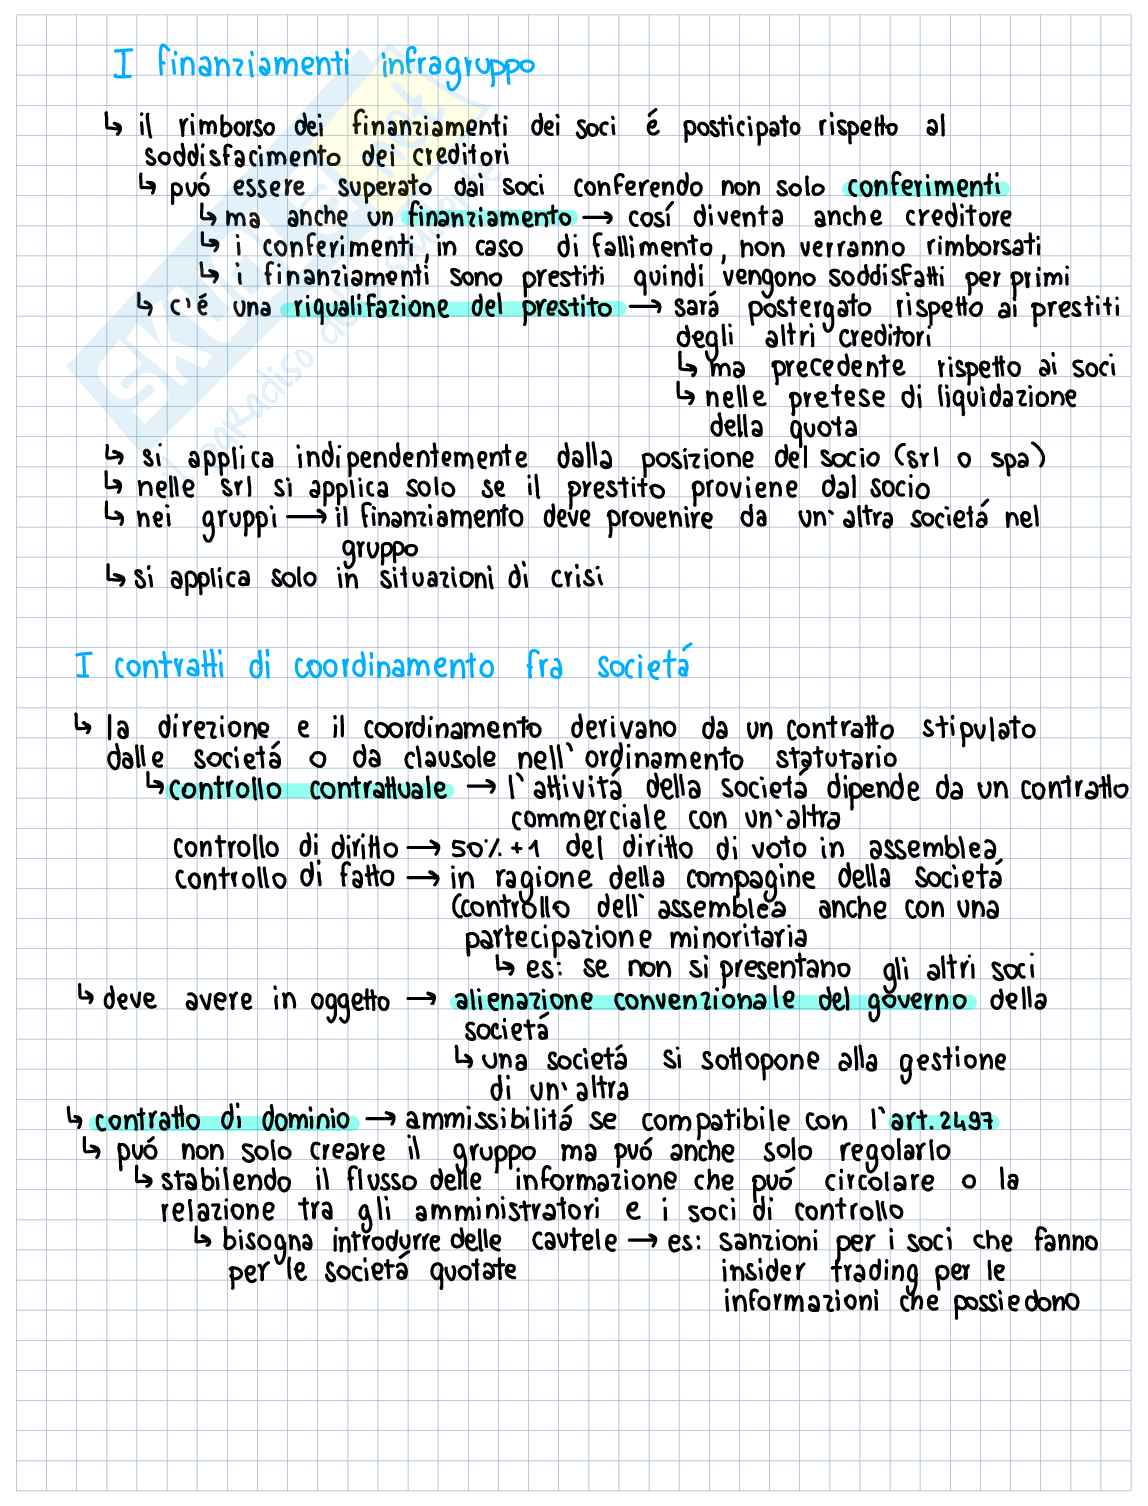 I finanziamenti infragruppo
↳ il rimborso dei finanziamenti dei soci é posticipato rispetto al
soddisfacimento dei creditori
↳ puó essere superato dai soci conferendo non solo conferimenti
↳ ma anche un finanziamento → cosí diventa anche creditore
↳ i conferimenti, in caso di fallimento, non verranno rimborsati
↳ i finanziamenti sono prestiti quindi vengono soddisfatti per primi
↳ c'é una riqualifazione del prestito → sará postergato rispetto ai prestiti
degli altri creditori
↳ ma precedente rispetto ai soci
↳ nelle pretese di liquidazione
della quota
↳ si applica indipendentemente dalla posizione del socio (srl o spa)
↳ nelle srl si applica solo se il prestito proviene dal socio
↳ nei gruppi → il finanziamento deve provenire da un'altra societá nel
gruppo
↳ si applica solo in situazioni di crisi
I contratti di coordinamento fra societá
↳ la direzione e il coordinamento derivano da un contratto stipulato
dalle societá o da clausole nell'ordinamento statutario
↳ controllo contrattuale → l'attivitá della societá dipende da un contratto
commerciale con un'altra
controllo di diritto → 50% +1 del diritto di voto in assemblea
controllo di fatto → in ragione della compagine della societá
(controllo dell'assemblea anche con una
partecipazione minoritaria
↳ es: se non si presentano gli altri soci
↳ deve avere in oggetto → alienazione convenzionale del governo della
societá
↳ una societá si sottopone alla gestione
di un'altra
↳ contratto di dominio → ammissibilitá se compatibile con l'art. 2497
↳ puó non solo creare il gruppo ma puó anche solo regolarlo
↳ stabilendo il flusso delle informazione che puó circolare o la
relazione tra gli amministratori e i soci di controllo
↳ bisogna introdurre delle cautele → es: sanzioni per i soci che fanno
per le societá quotate insider trading per le
informazioni che possiedono